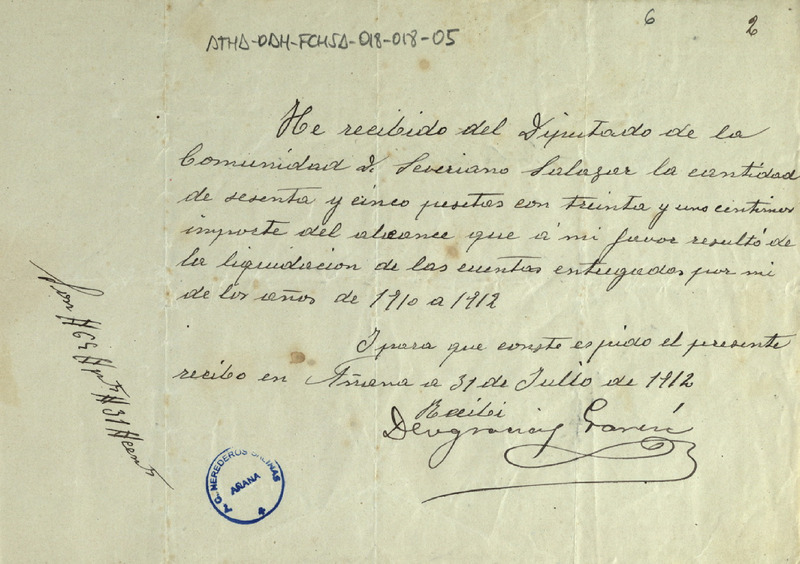 6
2
ATHA-DAH-FCHSA-018-018-05
He recibido del Diputado de la
Comunidad D. Severiano Salazar la cantidad
de sesenta y cinco pesetas con treinta y uno centimos
importe del alcance que á mi favor resultó de
la liquidacion de las cuentas entregadas por mi
de los años de 1910 a 1912
I para que conste espido el presente
recibo en Añana a 31 de Julio de 1912
Recibi
Deogracias
Son #65# pts #31# cents
HEREDEROS SALINAS
AÑANA